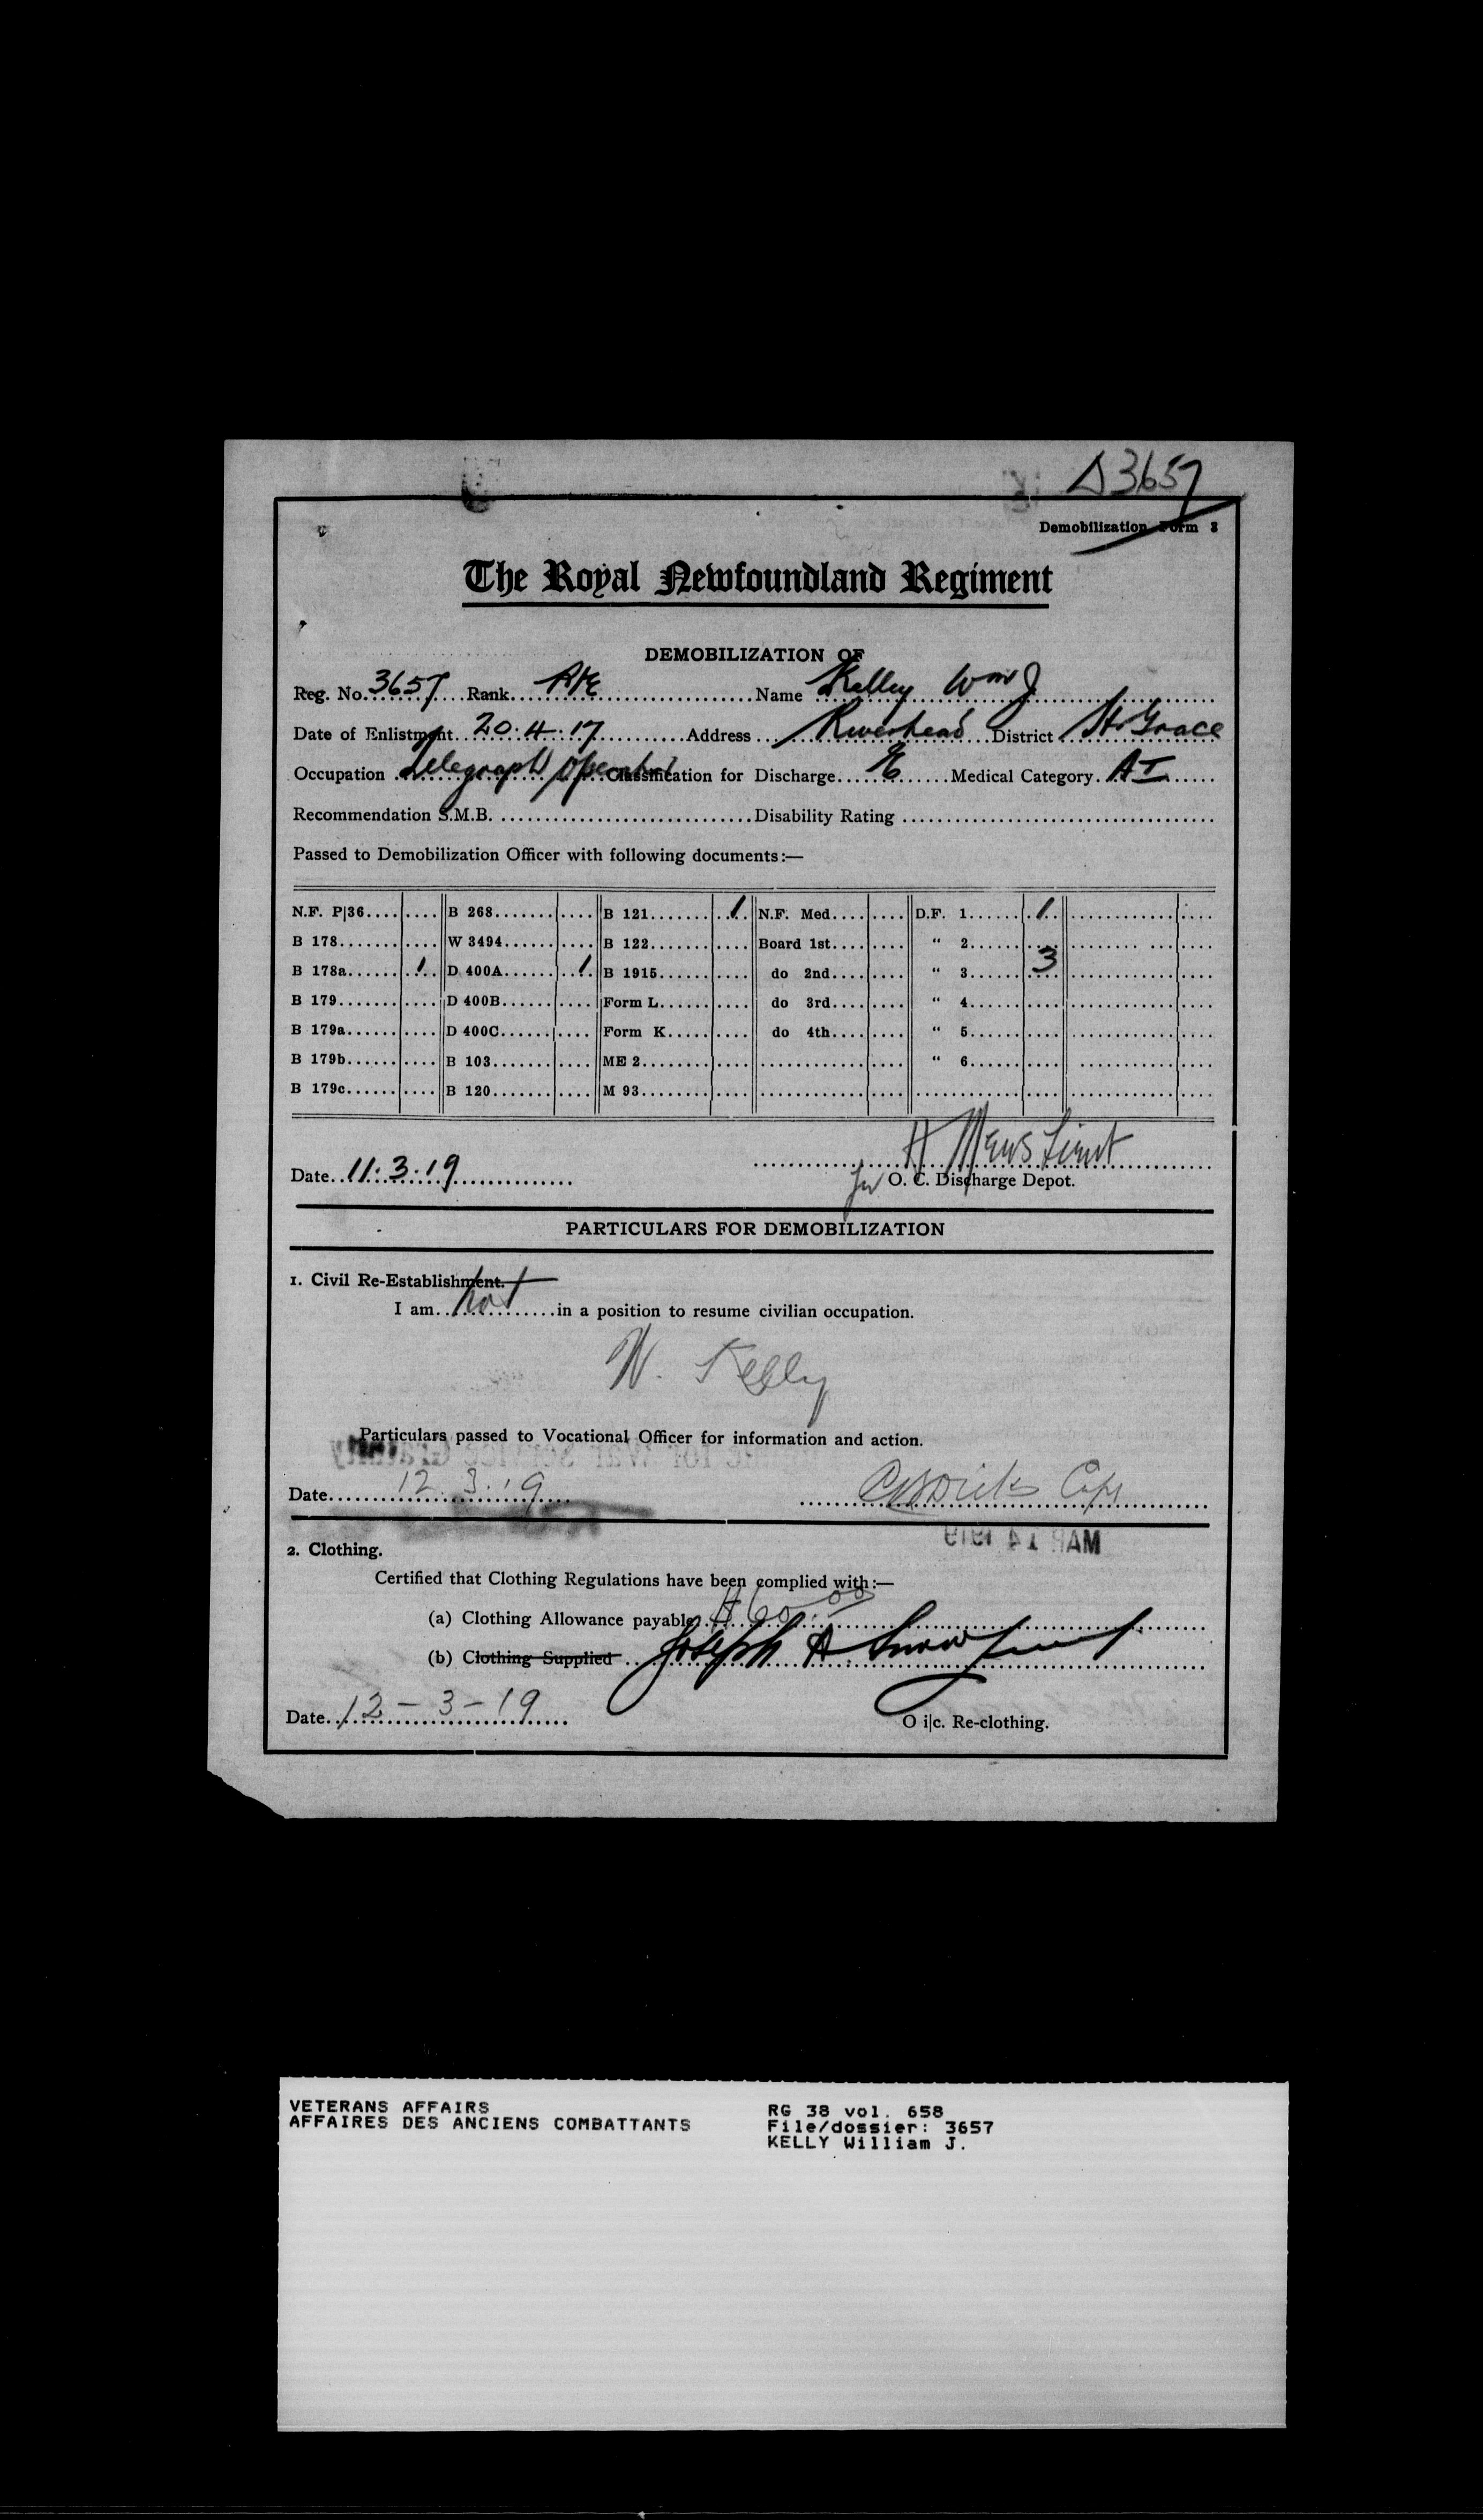 D3657
Demobilization Form 3
The Royal Newfoundland Regiment
DEMOBILIZATION OF
Reg. No. 3657 Rank Pte Name Kelley Wm J
Date of Enlistment 20.4.17 Address Riverhead District Hr Grace
Occupation Telegraph Operator Classification for Discharge E Medical Category A I
Recommendation S.M.B. Disability Rating
Passed to Demobilization Officer with following documents:—
N.F. P|36 B 268 B 121 1 N.F. Med. D.F. 1 1
B 178 W 3494 B 122 Board 1st " 2
B 178a 1 D 400A 1 B 1915 do 2nd " 3 3
B 179 D 400B Form L do 3rd " 4
B 179a D 400C Form K do 4th " 5
B 179b B 103 ME 2 " 6
B 179c B 120 M 93
H Mews Lieut
Date 11.3.19 for O. C. Discharge Depot.
PARTICULARS FOR DEMOBILIZATION
1. Civil Re-Establishment.
I am not in a position to resume civilian occupation.
W. Kelly
Particulars passed to Vocational Officer for information and action.
Date 12.3.19 Capt
MAR 14 1919
2. Clothing.
Certified that Clothing Regulations have been complied with:—
(a) Clothing Allowance payable $60.00
(b) Clothing Supplied Joseph A Snow Lieut
Date 12-3-19 O i|c. Re-clothing.
VETERANS AFFAIRS RG 38 vol. 658
AFFAIRES DES ANCIENS COMBATTANTS File/dossier: 3657
KELLY William J.